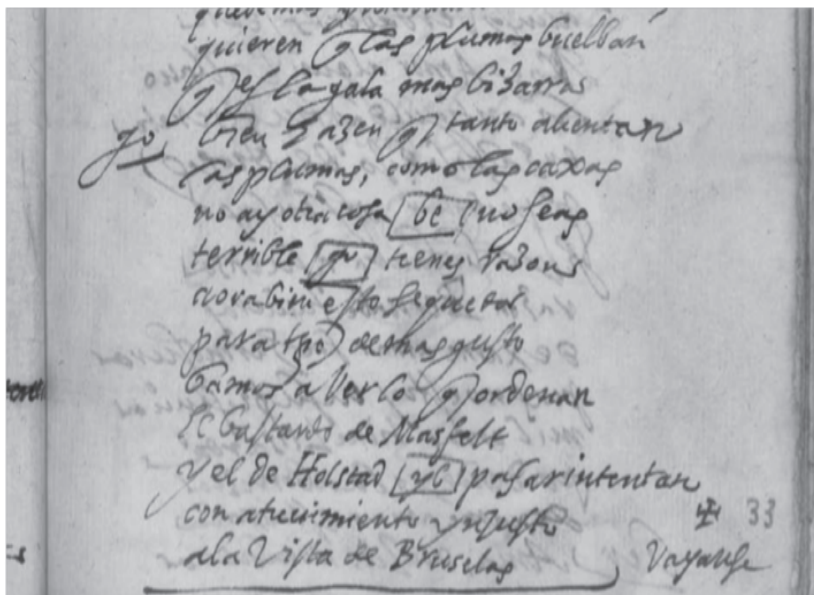 quieren q̃ las plumas buelban
q̃ es la gala mas bizarra
go bien hazen q̃ tanto alientan
las plumas, como las caxas
no ay otra cosa be no seas
terrible go tienes razon
aora bien esto se queda
para tpõ de mas gusto
bamos a ver lo q̃ ordenan
el bastardo de Masfelt
y el de Holstad pasar intentan
con atreuimiento ynjusto
33
a la Vista de Bruselas
Vayanse